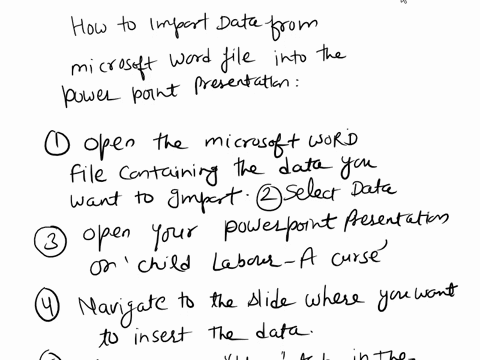 How to Import Data from
microsoft word file into the
power point Presentation:
① open the microsoft WORD
file containing the data you
want to Import. ② Select Data
③ open your powerpoint Presentation
on 'child Labour - A curse'
④ Navigate to the slide where you want
to insert the data.
in the